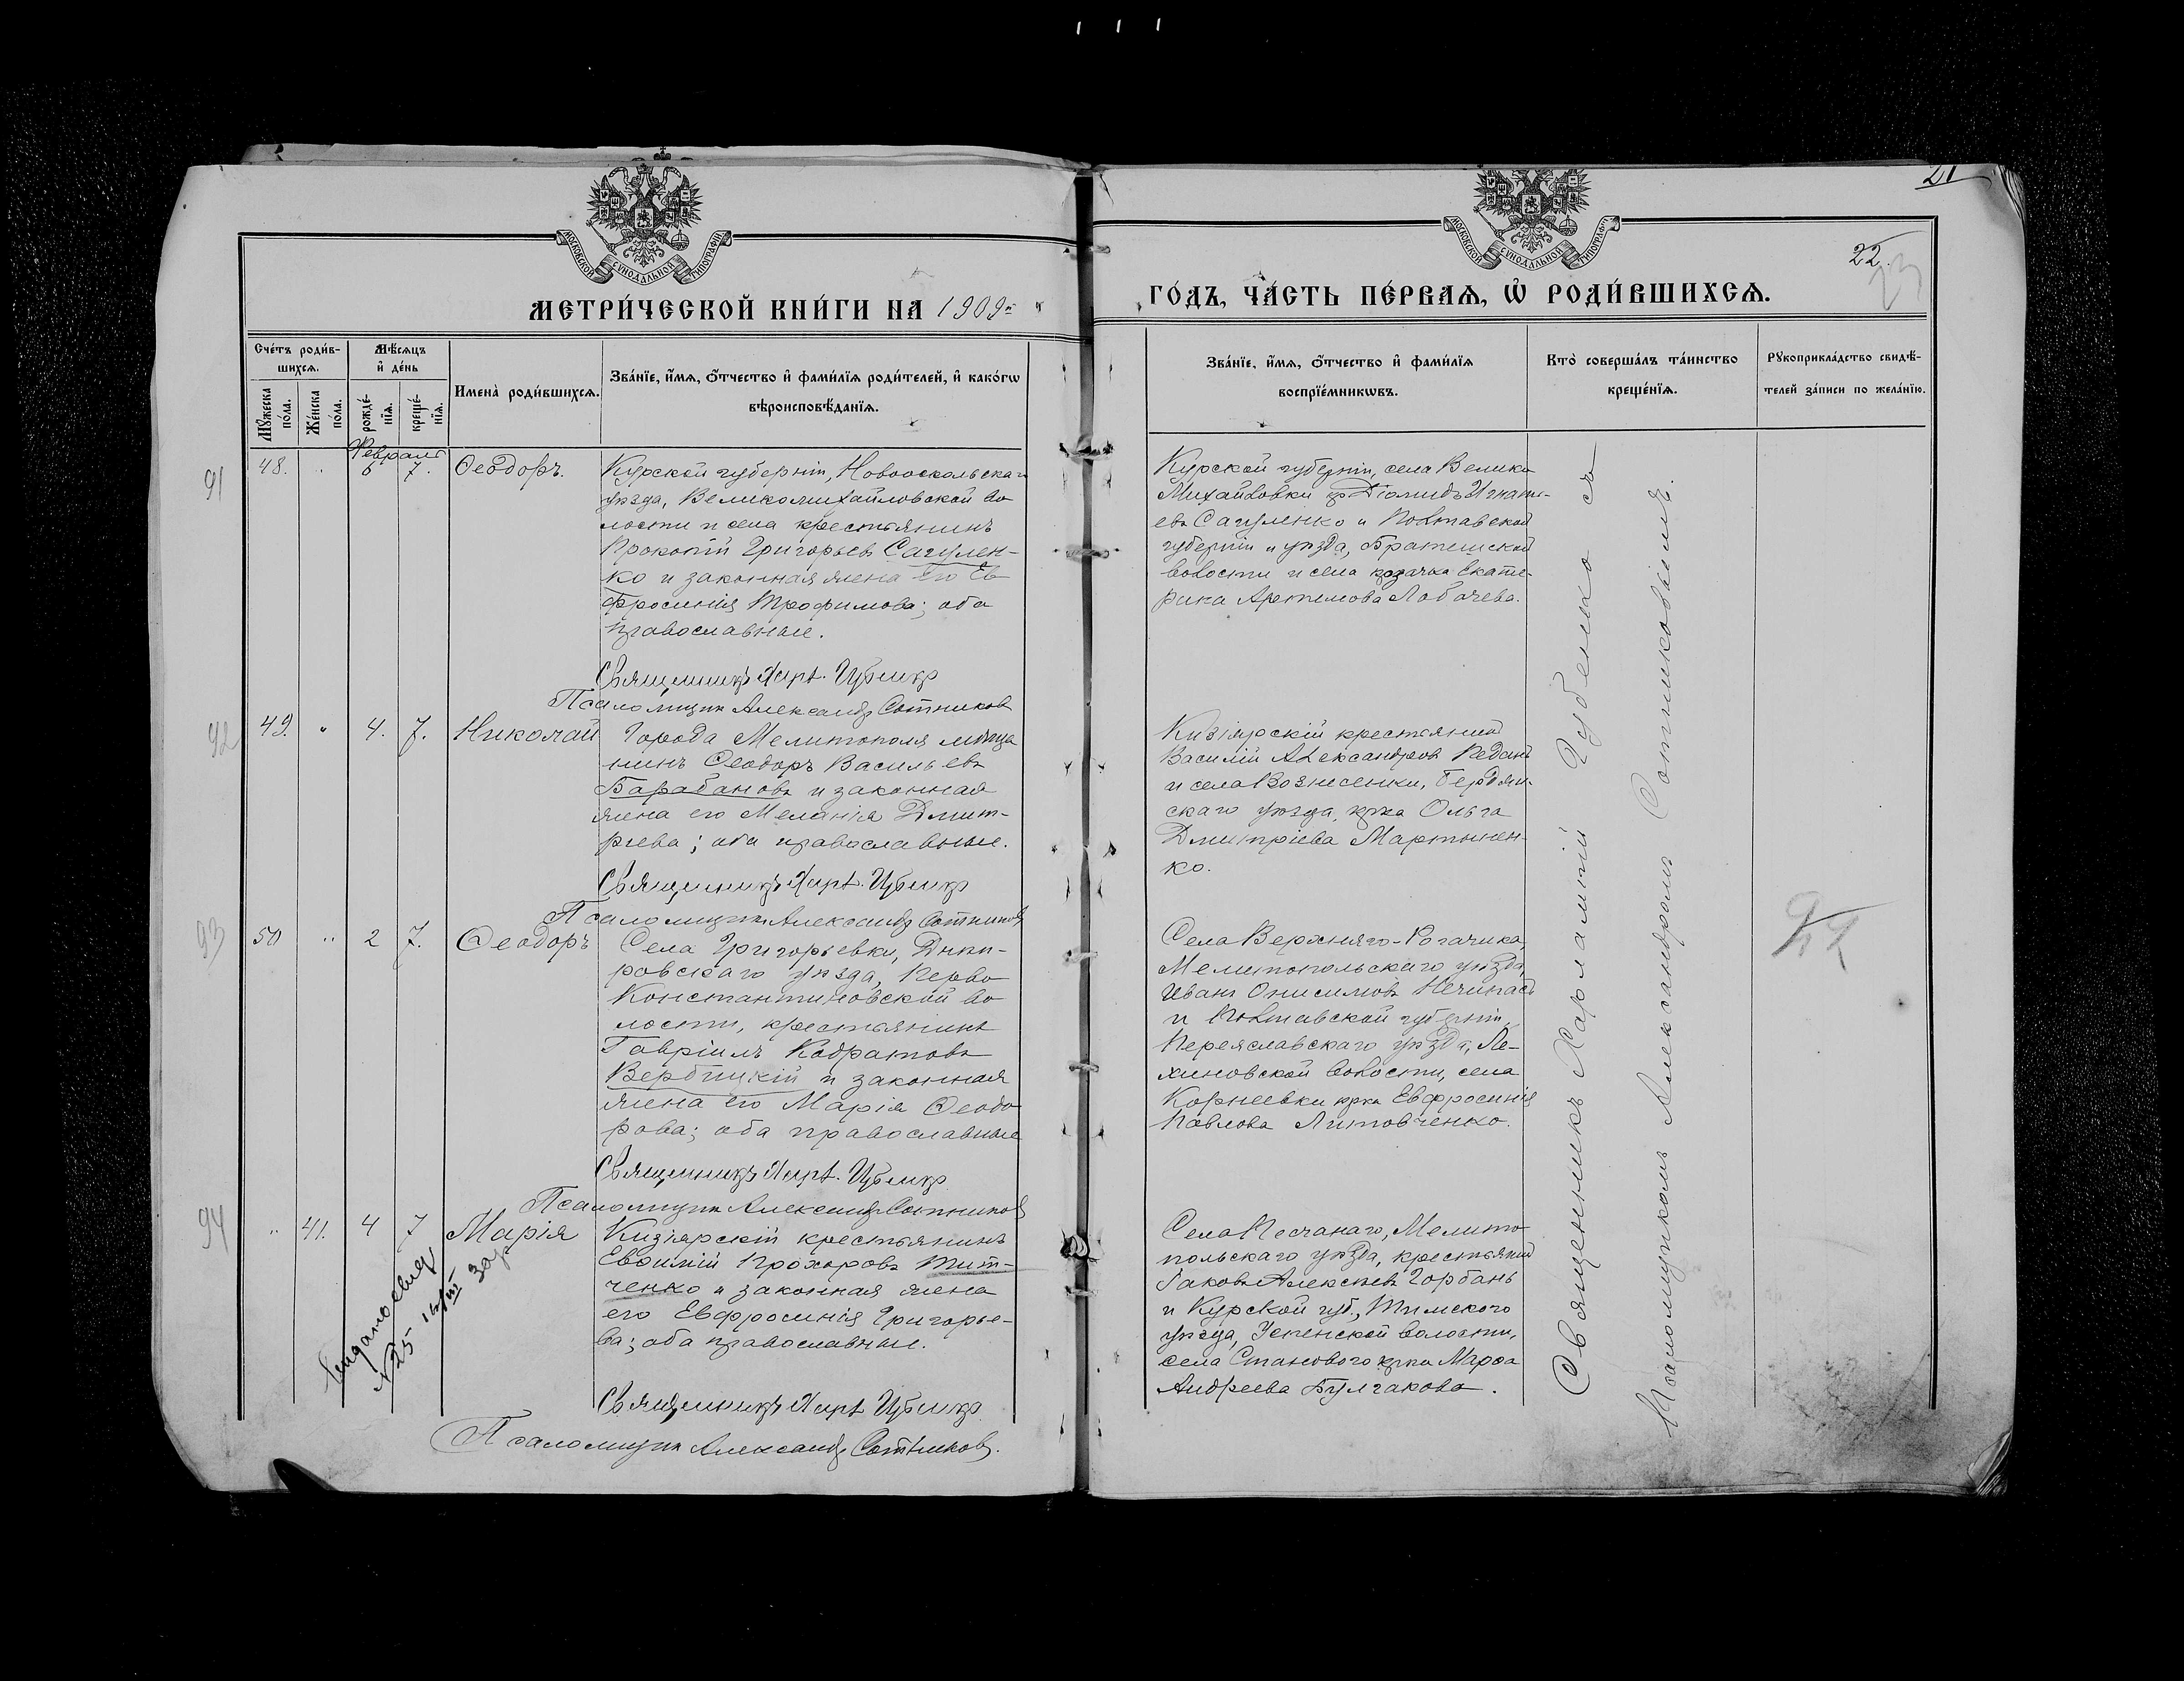 21
22.
23
МОСКОВСКОЙ СѴНОДАЛЬНОЙ ТИПОГРАФІИ
МОСКОВСКОЙ СѴНОДАЛЬНОЙ ТИПОГРАФІИ
МЕТРИ́ЧЕСКОЙ КНИ́ГИ НА 1909й
ГО́ДЪ, ЧА́СТЬ ПЕ́РВАѦ, Ѡ҆ РОДИ́ВШИХСѦ.
Сче́тъ роди́в-
шихсѧ.
Мꙋжеска по́ла.
Же́нска по́ла.
Мѣ́сѧцъ
и҆ де́нь
рожде́-
нїѧ.
креще́-
нїѧ.
Имена̀ роди́вшихсѧ.
Зва́нїе, и҆́мѧ, ѻ҆́тчество и҆ фами́лїѧ роди́телей, и҆ како́гѡ
вѣроисповѣ́данїѧ.
Зва́нїе, и҆́мѧ, ѻ҆́тчество и҆ фами́лїѧ
воспрїе́мникѡвъ.
Кто̀ соверша́лъ та́инство
креще́нїѧ.
Рꙋкоприкла́дство свидѣ́-
телей за́писи по жела́нїю.
Февраль
91
48. " 6 7. Ѳеодоръ.
Курской губерніи, Новооскольскаго
уѣзда, Великомихайловской во
лости и села крестьянинъ
Прокопій Григорьевъ Сагулен-
ко и законная жена его Ев
фросинія Трофимова; оба
православные.
Священникъ Харл. Губенко
Псаломщикъ Александръ Сотников
Курской губерніи, села Велико
Михайловки кр. Діомидъ Игнать-
евъ Сагуленко и Полтавской
губерніи и уѣзда, Братешской
волости и села козачка Екате-
рина Артемова Лобачева.
92
49. " 4. 7. Николай
Города Мелитополя мѣща
нинъ Ѳеодоръ Васильевъ
Барабановъ и законная
жена его Меланія Дмит-
ріева; оба православные.
Священникъ Харл. Губенко
Псаломщикъ Александръ Сотников
Кизіярскій крестьянинъ
Василій Александровъ Педанъ
и села Вознесенки, Бердян-
скаго уѣзда, крка Ольга
Дмитріева Мартынен-
ко.
93
50 " 2 7. Ѳеодоръ
Села Григорьевки, Днѣп-
ровскаго уѣзда, Перво
Константиновской во
лости, крестьянинъ
Гавріилъ Кодратовъ
Вербицкій и законная
жена его Марія Ѳеодо
рова; оба православные
Священникъ Харл. Губенко
Псаломщикъ Александръ Сотников
Села Верхняго-Рогачика,
Мелитопольскаго уѣзда,
Иванъ Онисимовъ
и Полтавской губерніи,
Переяславскаго уѣзда,
волости, села
Корнеевки крка Евфросинія
Павлова Литовченко.
94
" 41. 4 7 Марія
Кизіярскій крестьянинъ
Евѳимій Прохоровъ Тит-
ченко и законная жена
его Евфросинія Григорье-
ва; оба православные.
Священникъ Харл. Губенко
Псаломщикъ Александръ Сотников.
Села Песчанаго, Мелито
польскаго уѣзда, крестьянинъ
Іаковъ Алексѣевъ Горбань
и Курской губ., Тимскаго
уѣзда, Успенской волости,
села Становаго крка Марѳа
Андреева Булгакова.
№ 25
Священникъ Харлампій Губенко съ
Псаломщикомъ Александромъ Сотниковымъ.